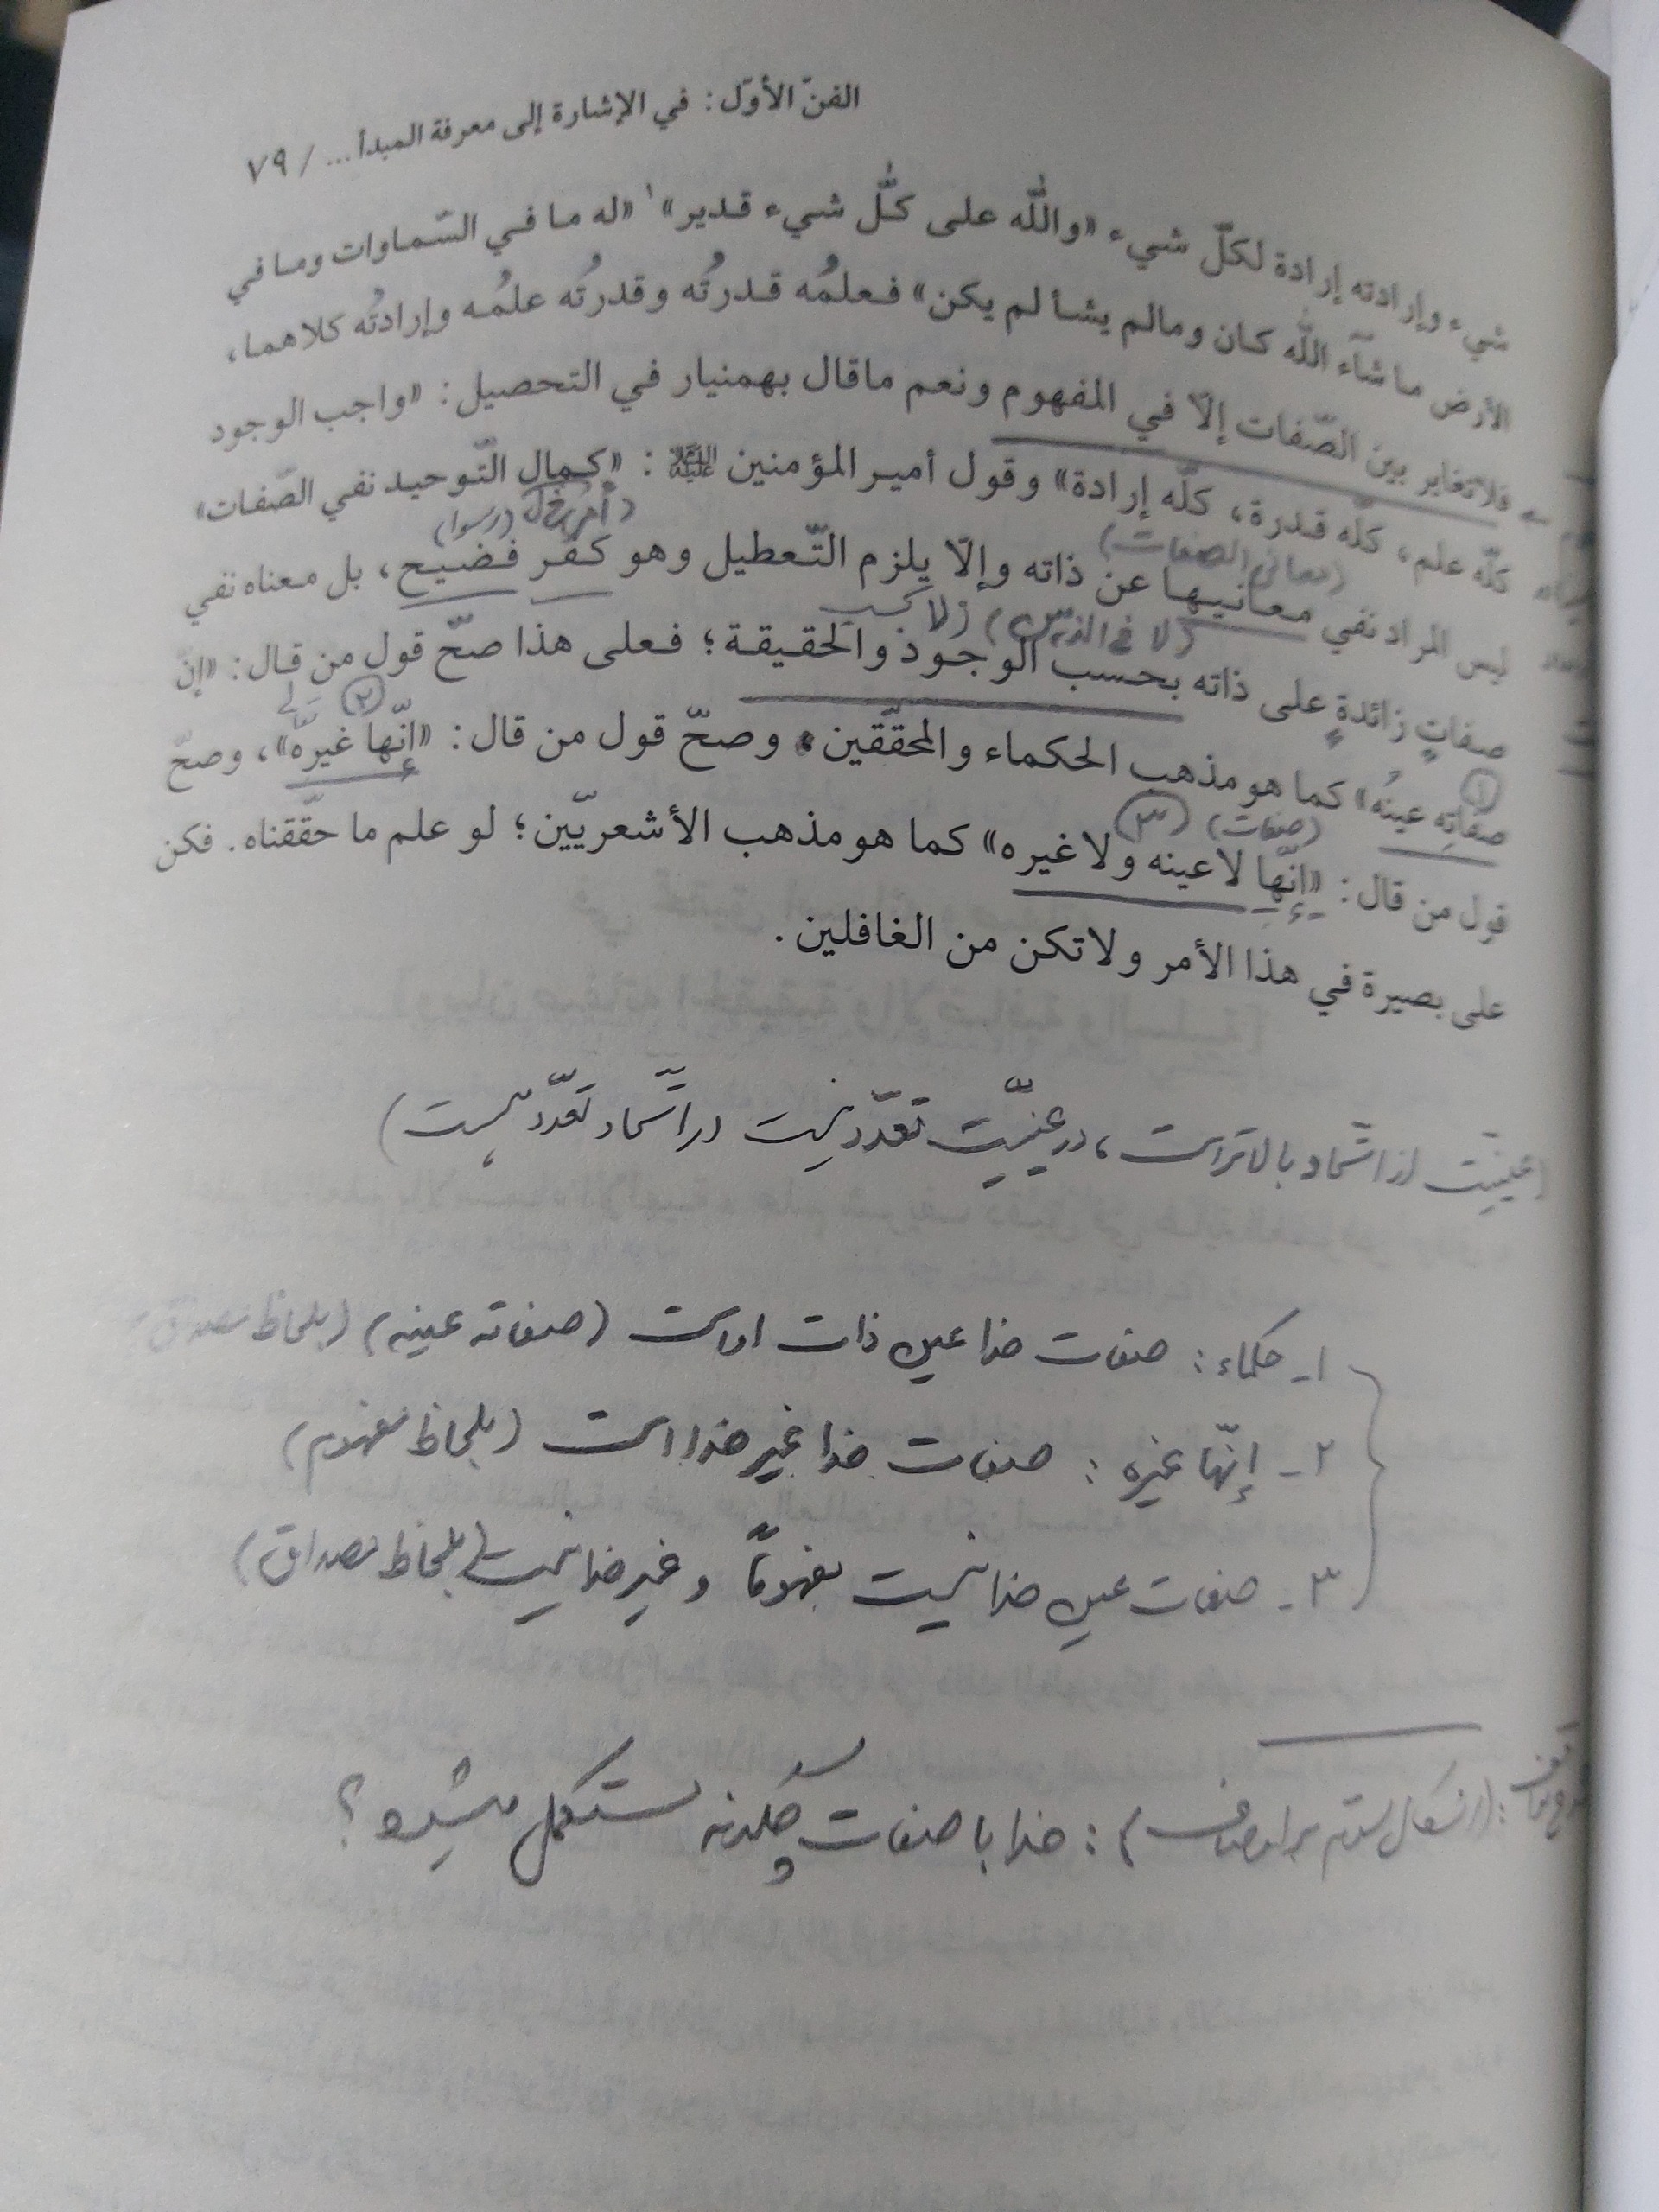 الفنّ الأوّل: في الإشارة إلى معرفة المبدأ ... / ٧٩
شيء وإرادته إرادة لكلّ شيء «واللّٰه على كلّ شيء قدير»١ «له ما في السّماوات وما في
الأرض ما شآء اللّٰه كان ومالم يشأ لم يكن» فعلمُه قدرتُه وقدرتُه علمُه وإرادتُه كلاهما،
فلاتغاير بين الصّفات إلّا في المفهوم ونعم ماقال بهمنيار في التحصيل: «واجب الوجود
كلّه علم، كلّه قدرة، كلّه إرادة» وقول أمير المؤمنين عليه السلام: «كمال التّوحيد نفي الصّفات»
(معانی الصفات) (رسوا)
ليس المراد نفي معانيها عن ذاته وإلّا يلزم التّعطيل وهو كفر فضيح، بل معناه نفي
(لا في الذهن)
صفاتٍ زائدةٍ على ذاته بحسب الوجود والحقيقة؛ فعلى هذا صحّ قول من قال: «إنّ
١ ٢
صفاتِه عينُه» كما هو مذهب الحكماء والمحقّقين، وصحّ قول من قال: «إنّها غيره»، وصحّ
(صفات) ٣
قول من قال: «إنّها لاعينه ولاغيره» كما هو مذهب الأشعريّين؛ لو علم ما حقّقناه. فكن
على بصيرة في هذا الأمر ولاتكن من الغافلين.
(عینیّت از اتّحاد بالاتر است، در عینیّت تعدّد نیست در اتّحاد تعدّد هست)
١- حکماء: صفات خدا عین ذات اوست (صفاته عینه) (بلحاظ مصداق)
٢- إنّها غیره: صفات خدا غیر خدا است (بلحاظ مفهوم)
٣- صفات عین خدا نیست مفهوماً و غیر خدا نیست (بلحاظ مصداق)
: خدا با صفات چگونه مستکمل میشود؟